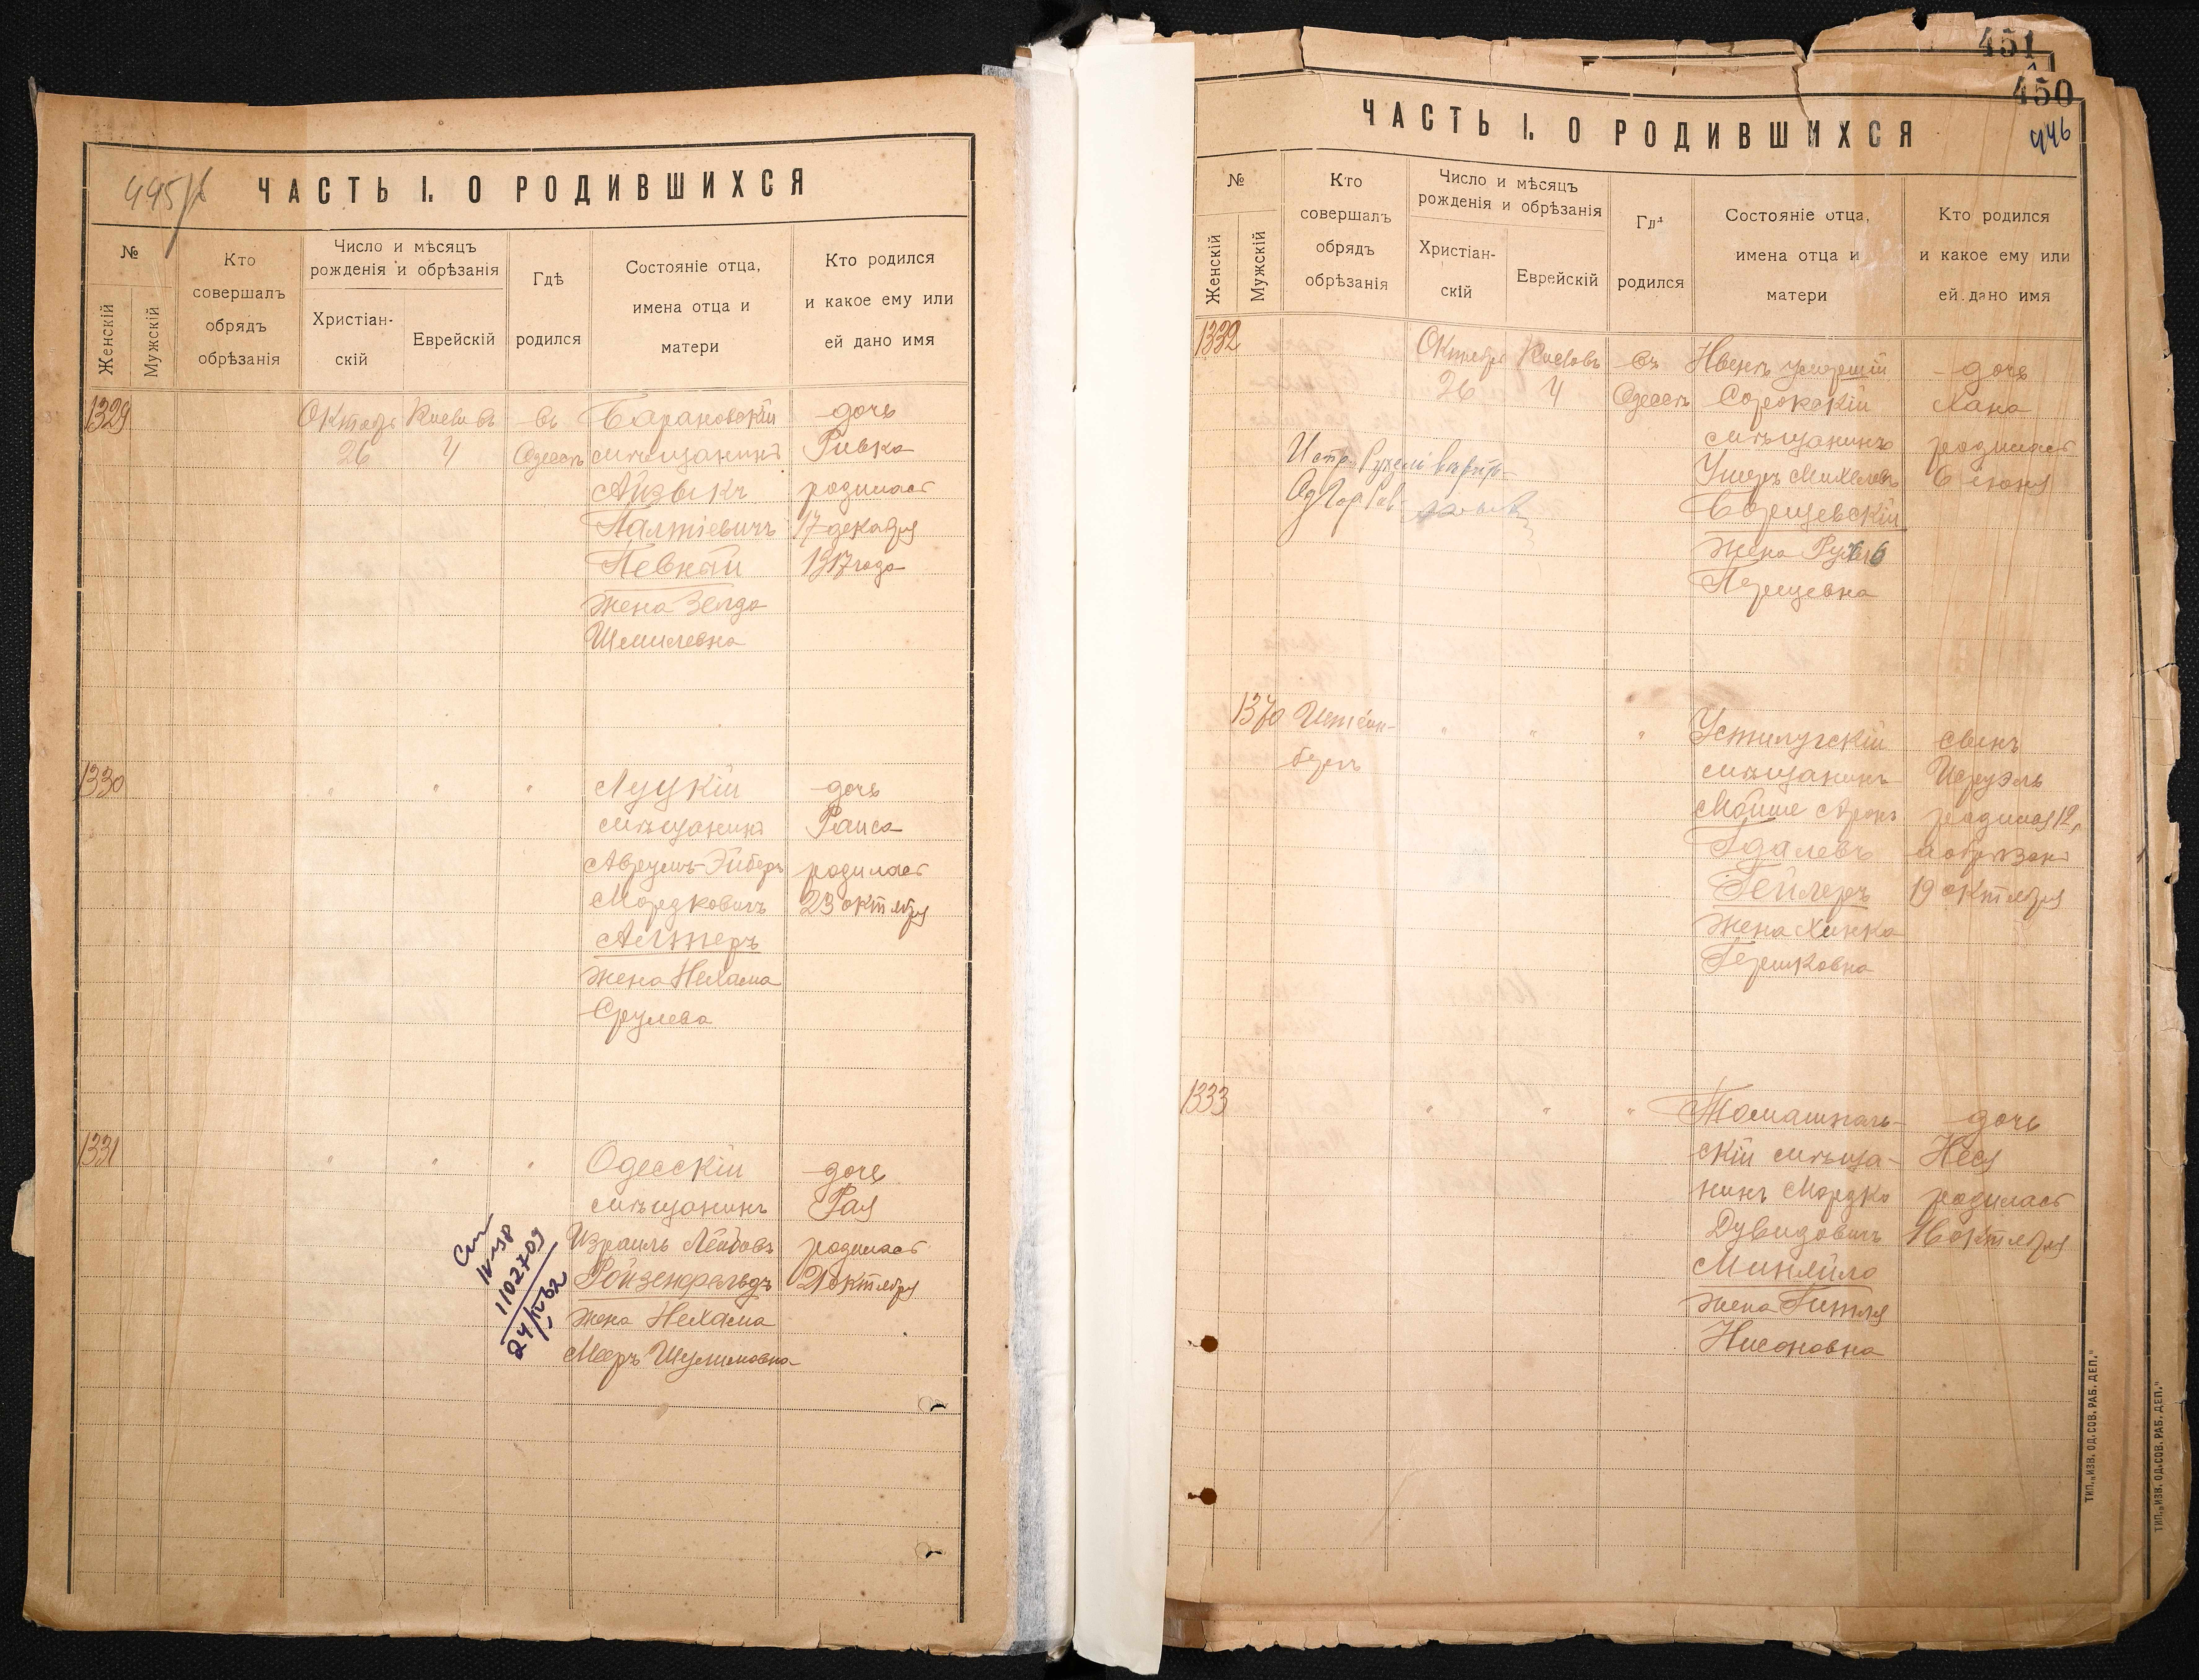 445
ЧАСТЬ I. О РОДИВШИХСЯ
№
Женскій
Мужскій
Кто
совершалъ
обрядъ
обрѣзанія
Число и мѣсяцъ
рожденія и обрѣзанія
Христіан-
скій
Еврейскій
Гдѣ
родился
Состояніе отца,
имена отца и
матери
Кто родился
и какое ему или
ей дано имя
1329
26
4
въ
Одессѣ
Барановскій
мѣщанинъ
Айзыкъ
Палтіевичъ
Певный
жена Зелда
Шмилевна
дочь
Ривка
родилась
17 декабря
1917 года
1330
"
"
"
Луцкій
мѣщанинъ
Аврумъ-Эйберъ
Мордковичъ
Алтеръ
жена Нехама
Срулева
дочь
Раиса
родилась
23 октября
1331
"
"
"
Одесскій
мѣщанинъ
Израиль Лейбовъ
Ройзенфельдъ
жена Нехама
Мееръ Шулимовна
дочь
Рая
родилась
2 октября
1102709
451
450
446
ЧАСТЬ I. О РОДИВШИХСЯ
№
Женскій
Мужскій
Кто
совершалъ
обрядъ
обрѣзанія
Число и мѣсяцъ
рожденія и обрѣзанія
Христіан-
скій
Еврейскій
Гдѣ
родился
Состояніе отца,
имена отца и
матери
Кто родился
и какое ему или
ей дано имя
1332
26
4
въ
Одессѣ
Нынѣ умершій
Сорокскій
мѣщанинъ
Ушеръ Михелевъ
Борщевскій
жена
Перецевна
дочь
Хана
родилась
6 июня
1370
"
"
"
Устилугскій
мѣщанинъ
Мойше Аронъ
Гдалевъ
Гейлеръ
жена Хинка
Гершковна
сынъ
Исруэль
родился 12,
а обрѣзанъ
19 октября
1333
"
"
"
Томашполь-
скій мѣща-
нинъ Мордко
Дувидовичъ
жена Гитля
Нисоновна
дочь
Неся
родилась
16 октября
ТИП. „ИЗВ. ОД. СОВ. РАБ. ДЕП."
ТИП. „ИЗВ. ОД. СОВ. РАБ. ДЕП."